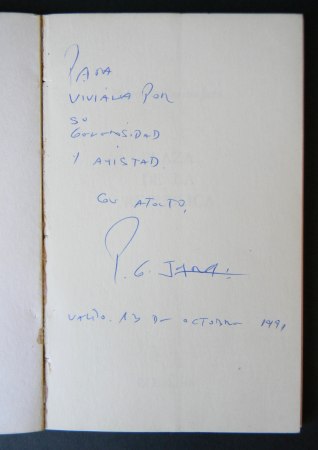 PARA
VIVIANA POR
SU
GENEROSIDAD
Y AMISTAD
CON AFECTO,
P. G. JARA.
13 DE OCTUBRE 1991